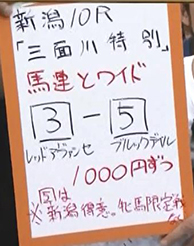 新潟10R
「三面川特別」
馬連とワイド
3-5
レッドアヴァンセ ブルックデイル
1000円ずつ
※新潟得意。牝馬限定戦